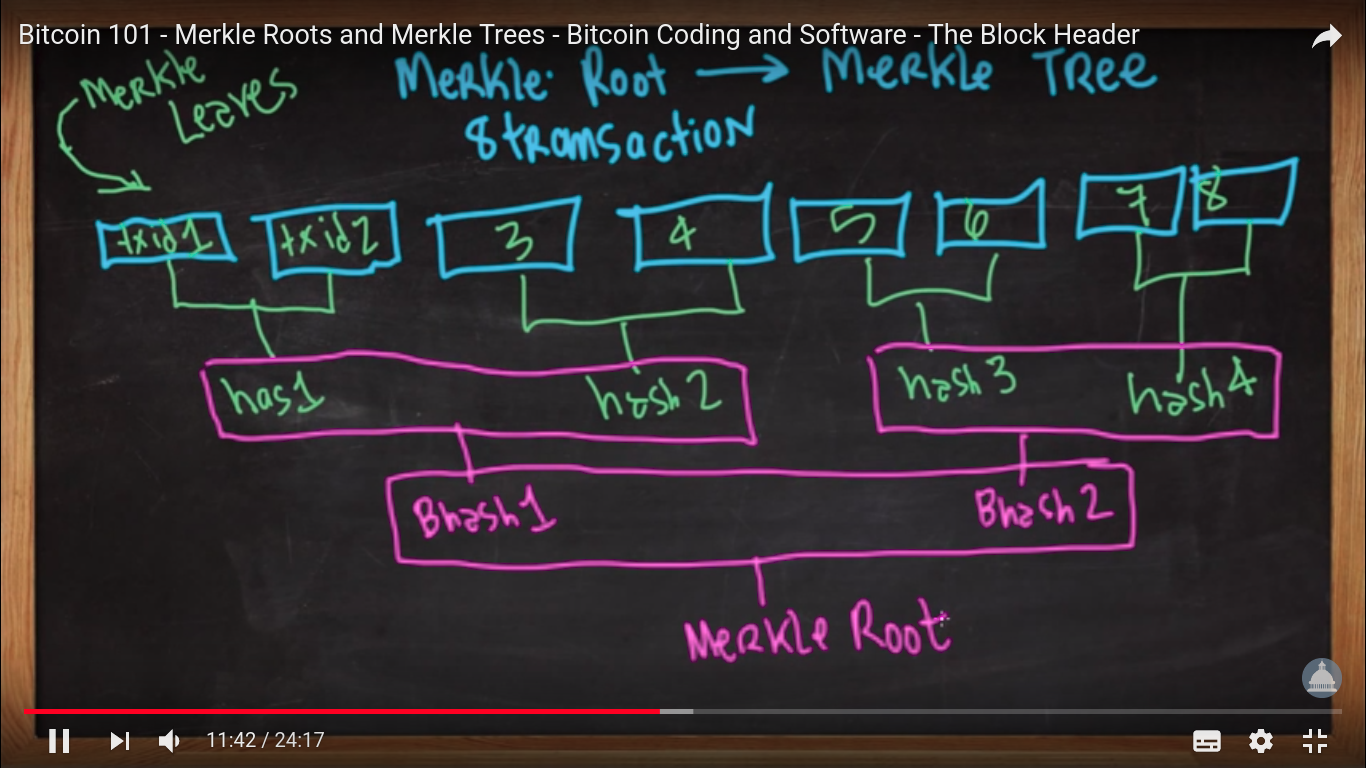 Bitcoin 101 - Merkle Roots and Merkle Trees - Bitcoin Coding and Software - The Block Header
Merkle Leaves
Merkle Root → Merkle Tree
8 transaction
txid1 txid2 3 4 5 6 7 8
has1 hash2 hash3 hash4
Bhash1 Bhash2
Merkle Root
11:42 / 24:17